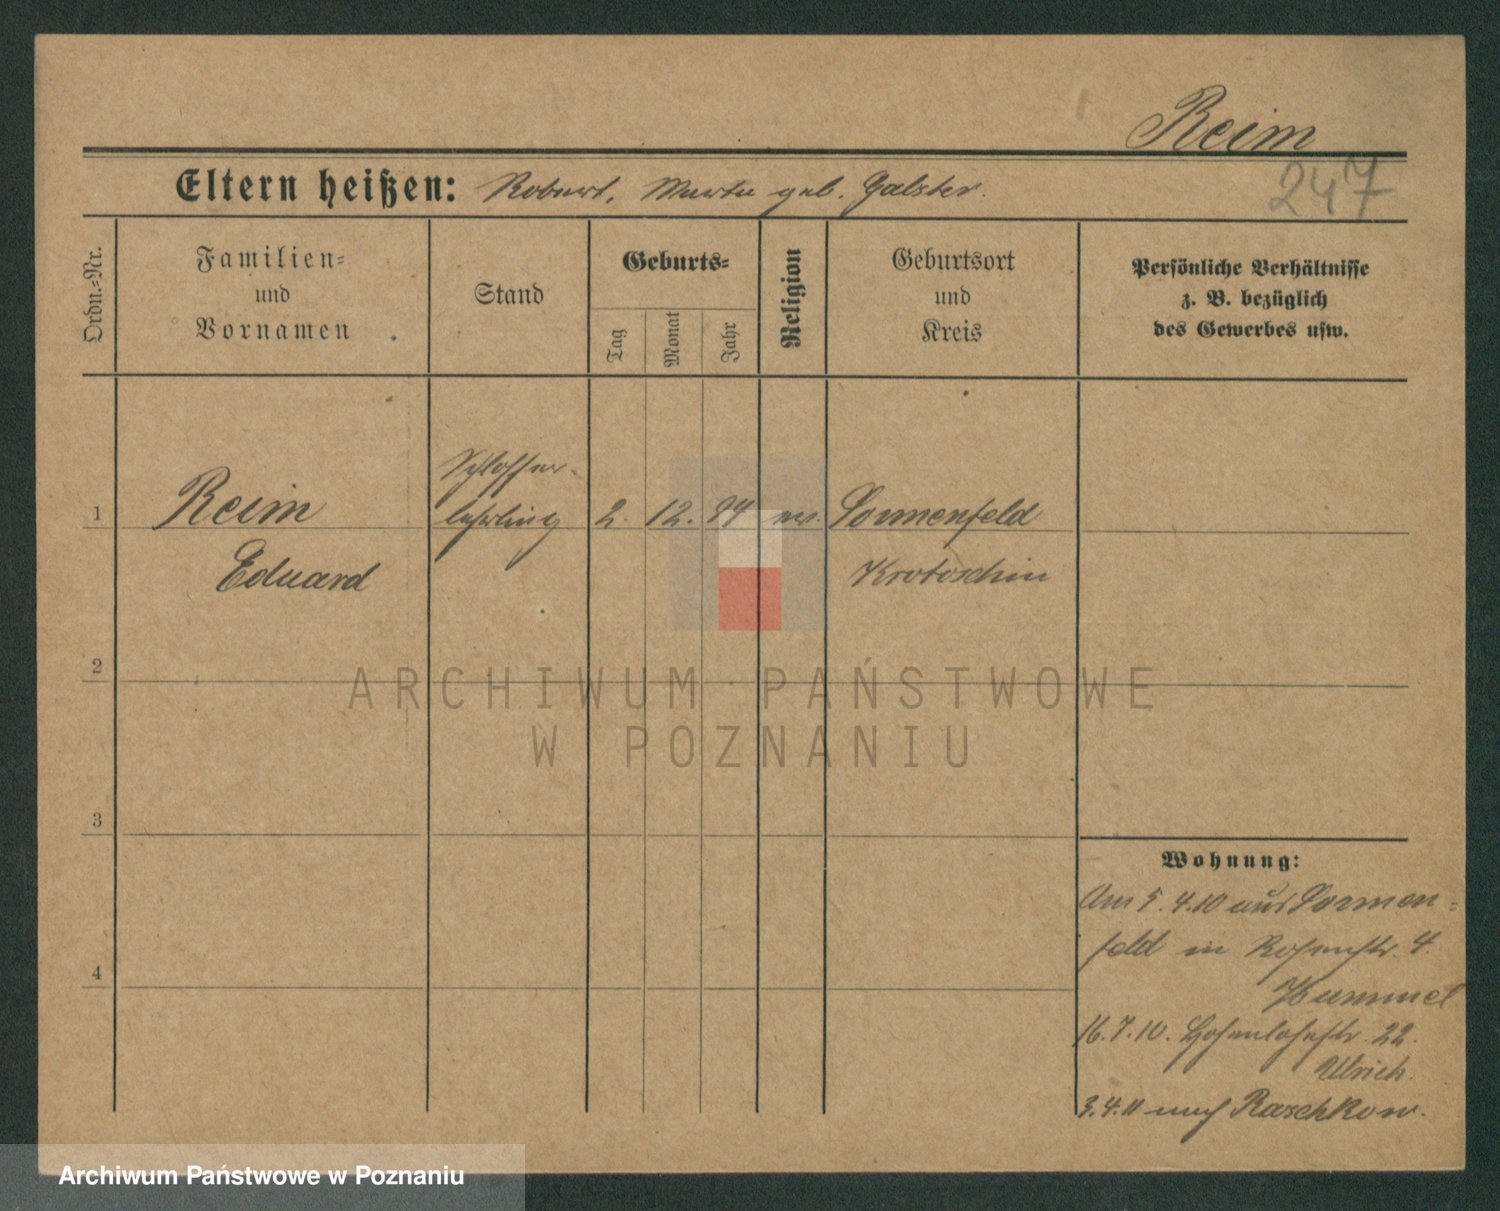 Reim
247
Eltern heißen: Robert, Marta geb. Galster.
Ordn.-Nr.
Familien-
und
Vornamen
Stand
Geburts-
Tag
Monat
Jahr
Religion
Geburtsort
und
Kreis
Persönliche Verhältnisse
z. B. bezüglich
des Gewerbes usw.
Schlosser-
1 Reim lehrling 2. 12. 94 ev. Sonnenfeld
Eduard Krotoschin
2
3
4
ARCHIWUM PAŃSTWOWE
W POZNANIU
Wohnung:
Am 5.4.10 aus Sonnen-
feld in Rosenstr. 4
Hummel
16.7.10. Hohenlohestr. 22.
Ulrich.
3.4.11 nach Raschkow.
Archiwum Państwowe w Poznaniu